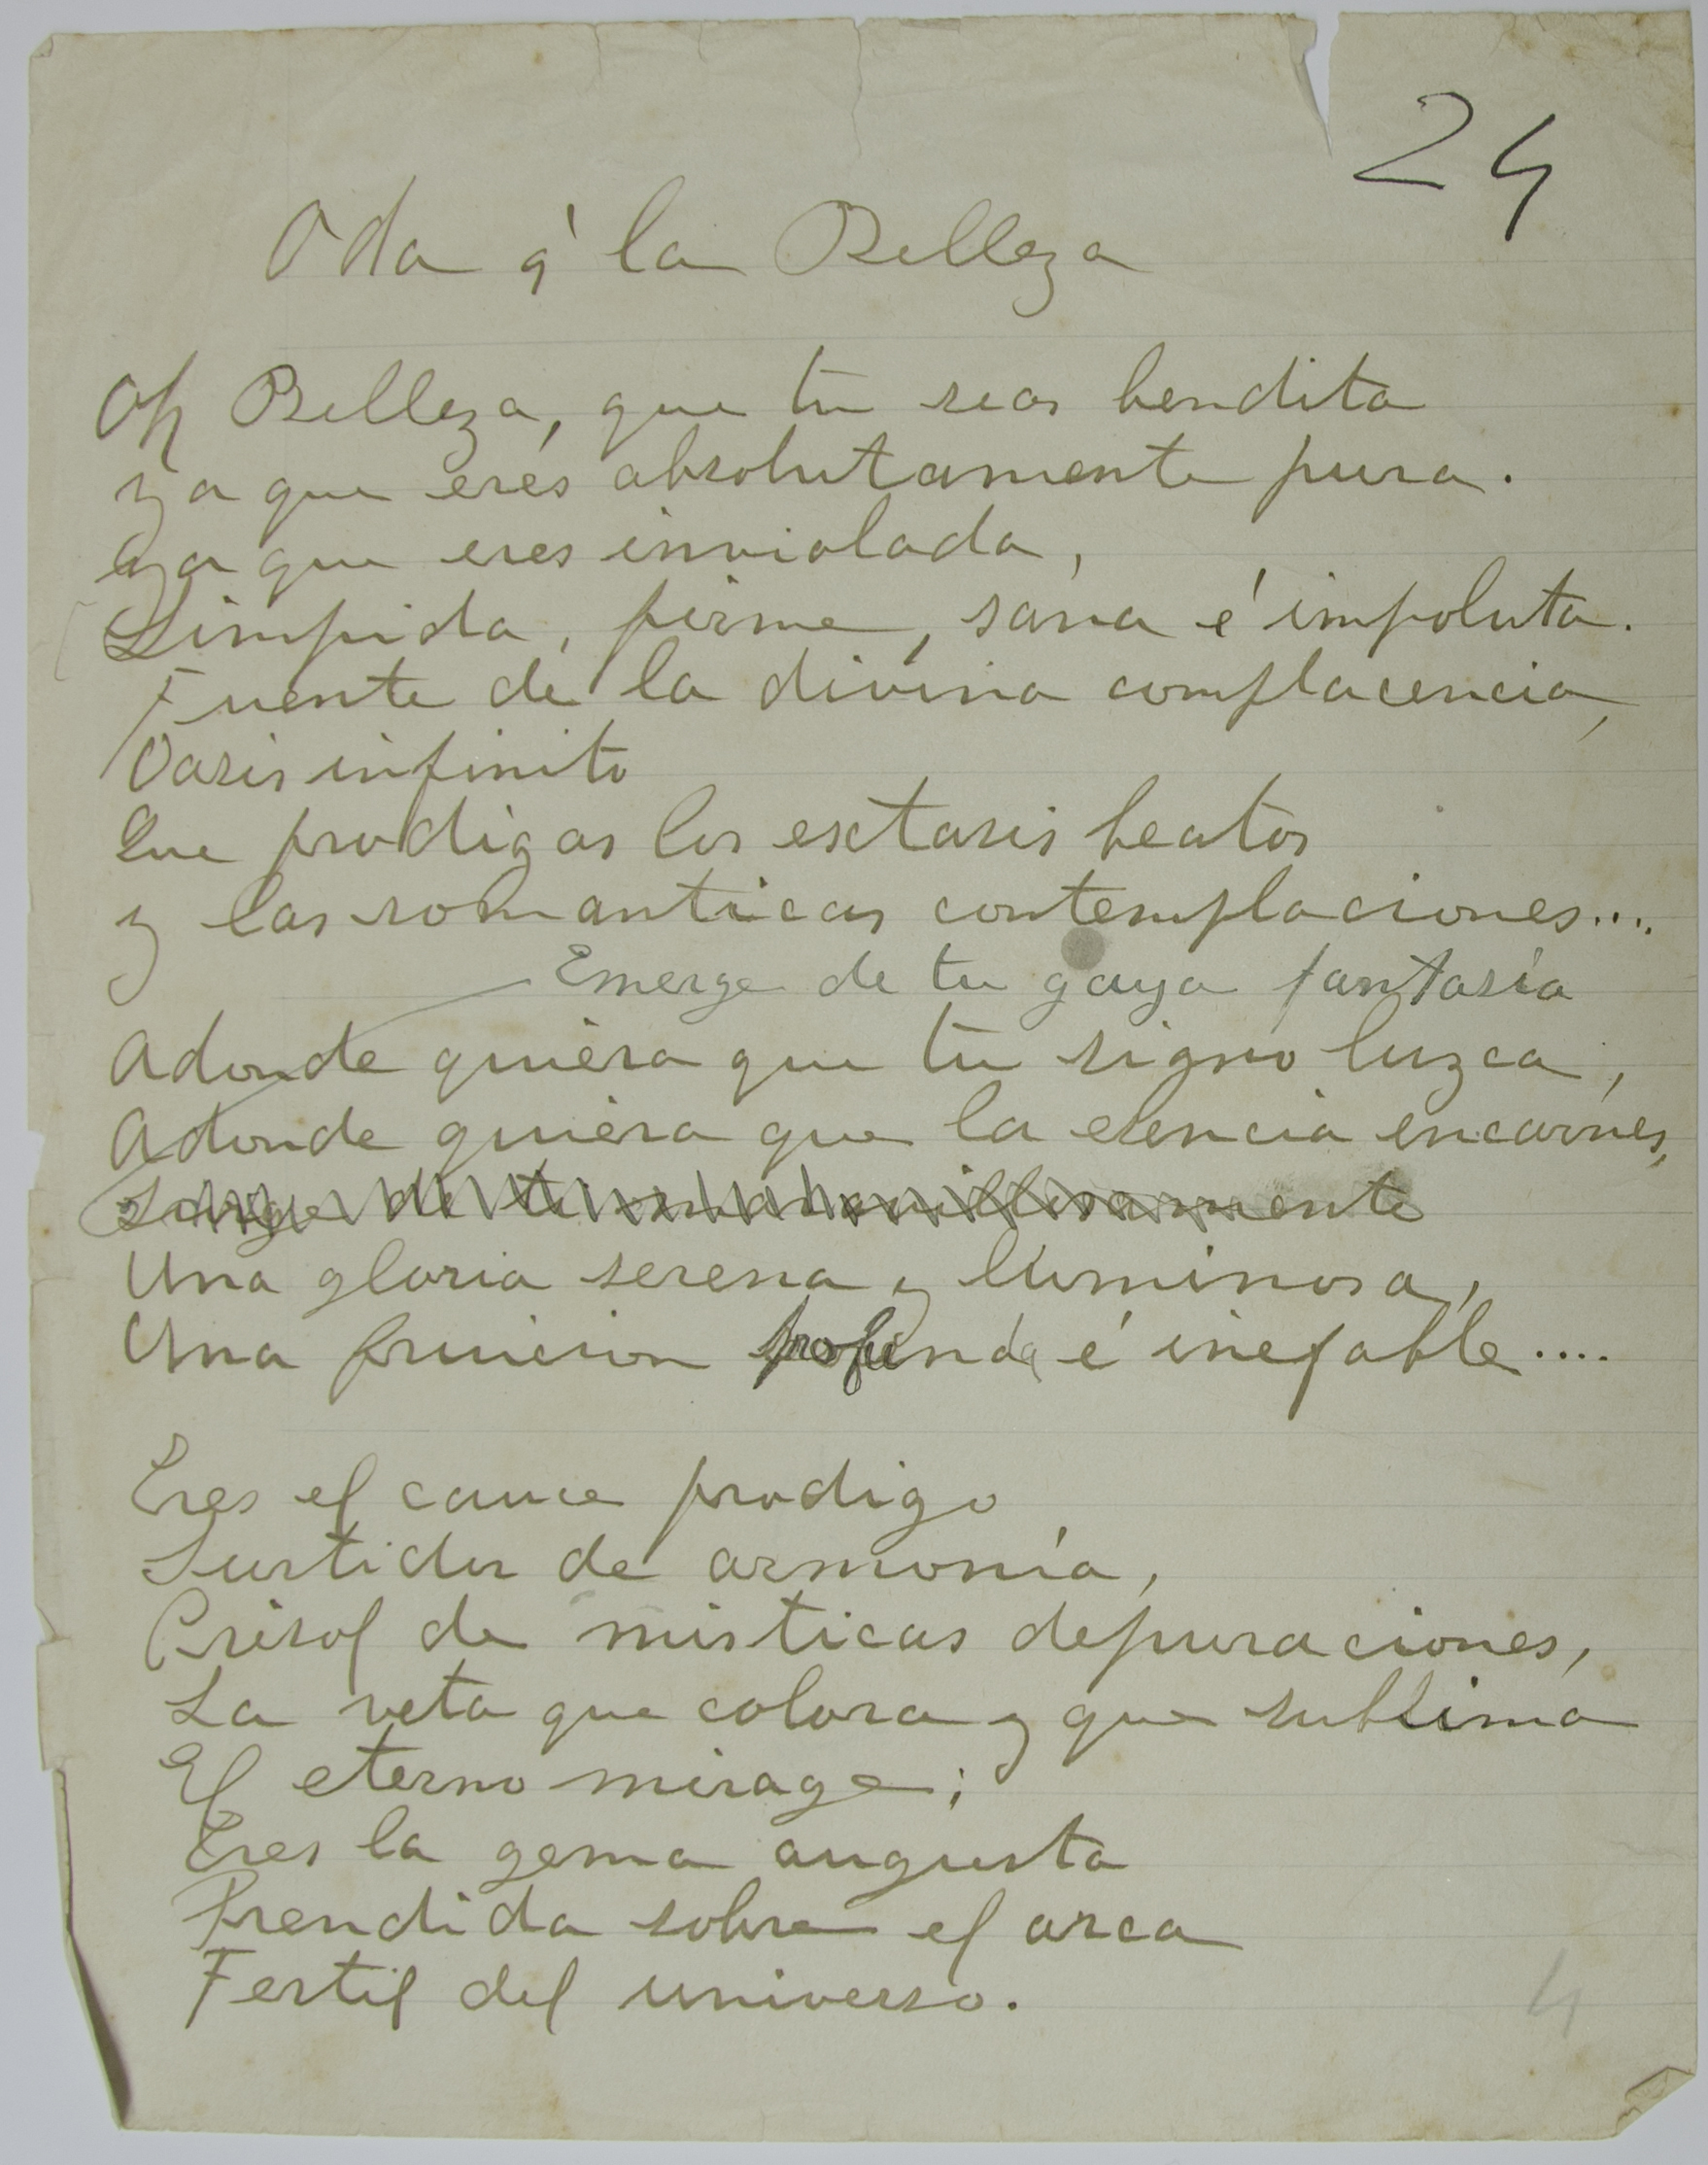 24
Oda á la Belleza
Oh Belleza, que tu seas bendita
ya que eres absolutamente pura.
ya que eres inviolada,
Limpida, firme, sana é impoluta.
Fuente de la divina complacencia,
Oasis infinito
Que prodigas los esctasis beatos
y las romanticas contemplaciones...
Emerge de tu gaya fantasía
Adonde quiera que tu signo luzca,
Adonde quiera que la esencia encarnes,
Surge de ti maravillosamente
Una gloria serena y luminosa,
Una fruicion profunda é inefable....
Eres el cauce prodigo
Surtidor de armonía,
Crisol de misticas depuraciones,
La veta que colora y que sublima
El eterno mirage;
Eres la gema augusta
Prendida sobre el arca
Fertil del universo.
4